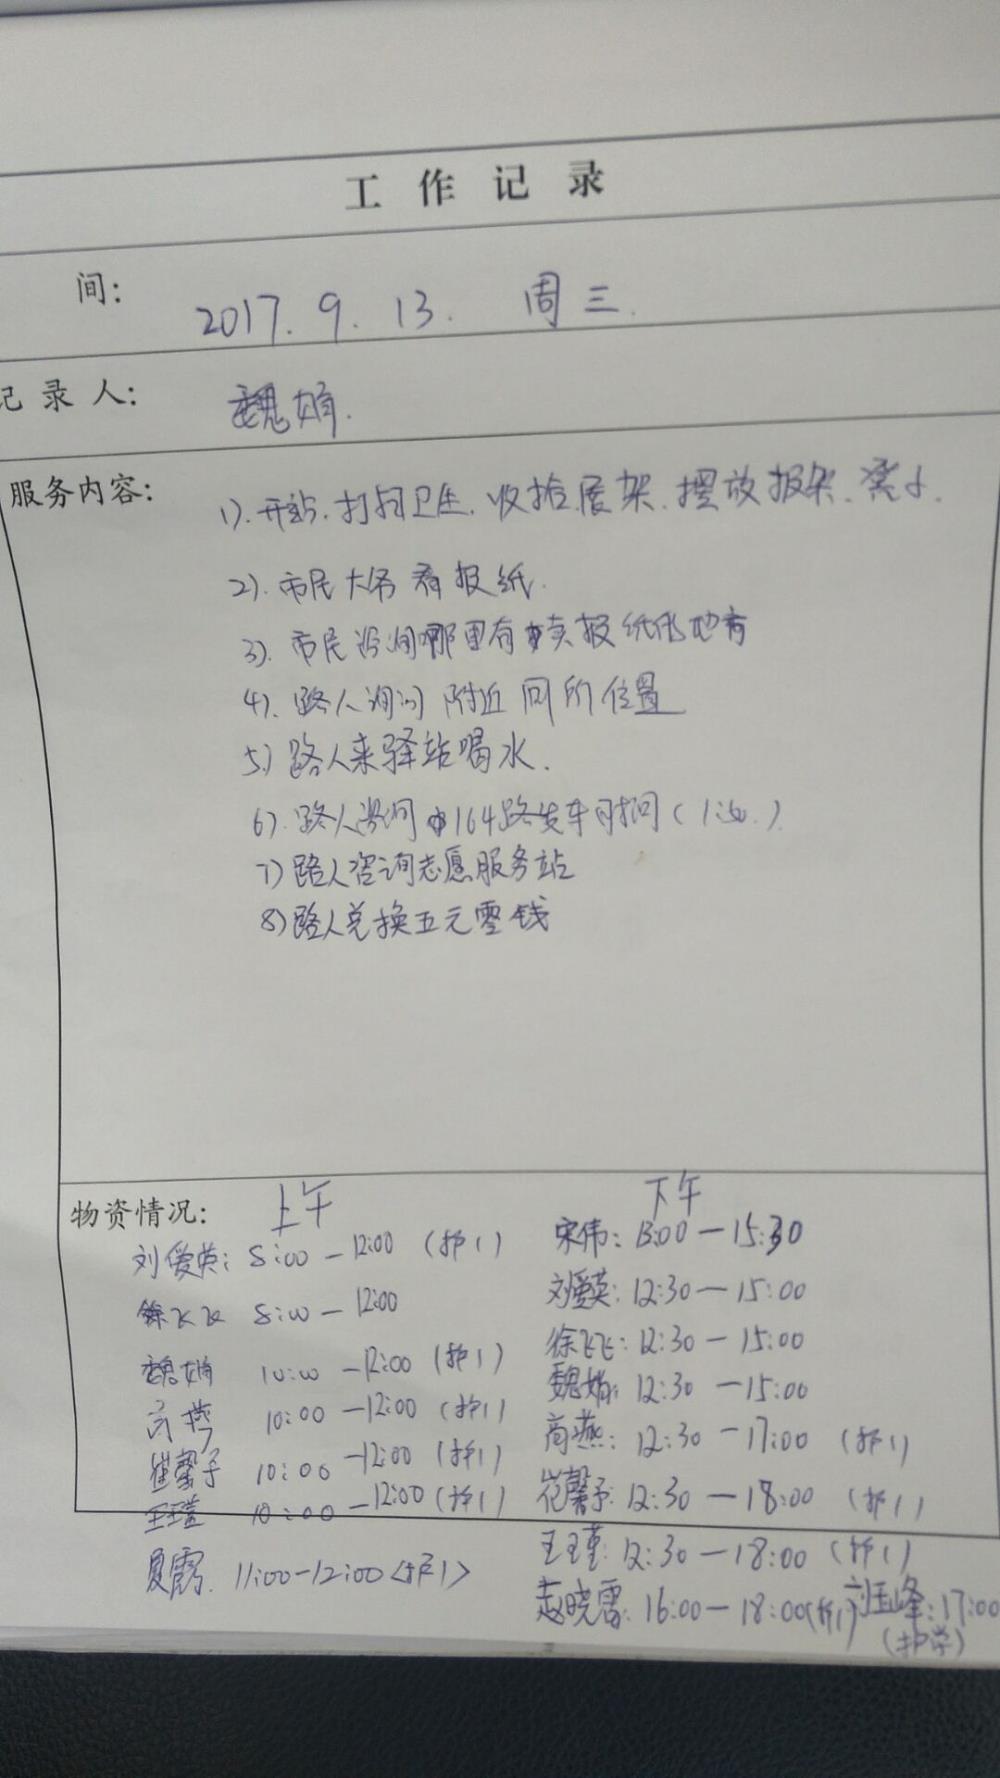 工作记录
间：
2017.9.13. 周三.
记录人：
魏娟.
服务内容：
1).开站.打扫卫生.收拾展架.摆放报架.凳子.
2).市民大爷看报纸.
3).市民咨询哪里有卖报纸的地方
4).路人询问附近厕所位置
5)路人来驿站喝水.
6).路人咨询164路发车时间(1:50.)
7)路人咨询志愿服务站
8)路人兑换五元零钱
物资情况：
上午
刘爱英：8:00—12:00（护1）
徐飞飞 8:00—12:00
魏娟 10:00—12:00（护1）
商燕 10:00—12:00（护1）
崔馨予 10:00—12:00（护1）
王瑾 10:00—12:00（护1）
夏露. 11:00—12:00<护1>
下午
宋伟：13:00—15:30
刘爱英：12:30—15:00
徐飞飞：12:30—15:00
魏娟：12:30—15:00
商燕：12:30—17:00（护1）
崔馨予：12:30—18:00（护1）
王瑾：12:30—18:00（护1）
赵晓雷：16:00—18:00（护1）
刘玉峰：17:00
（护学）